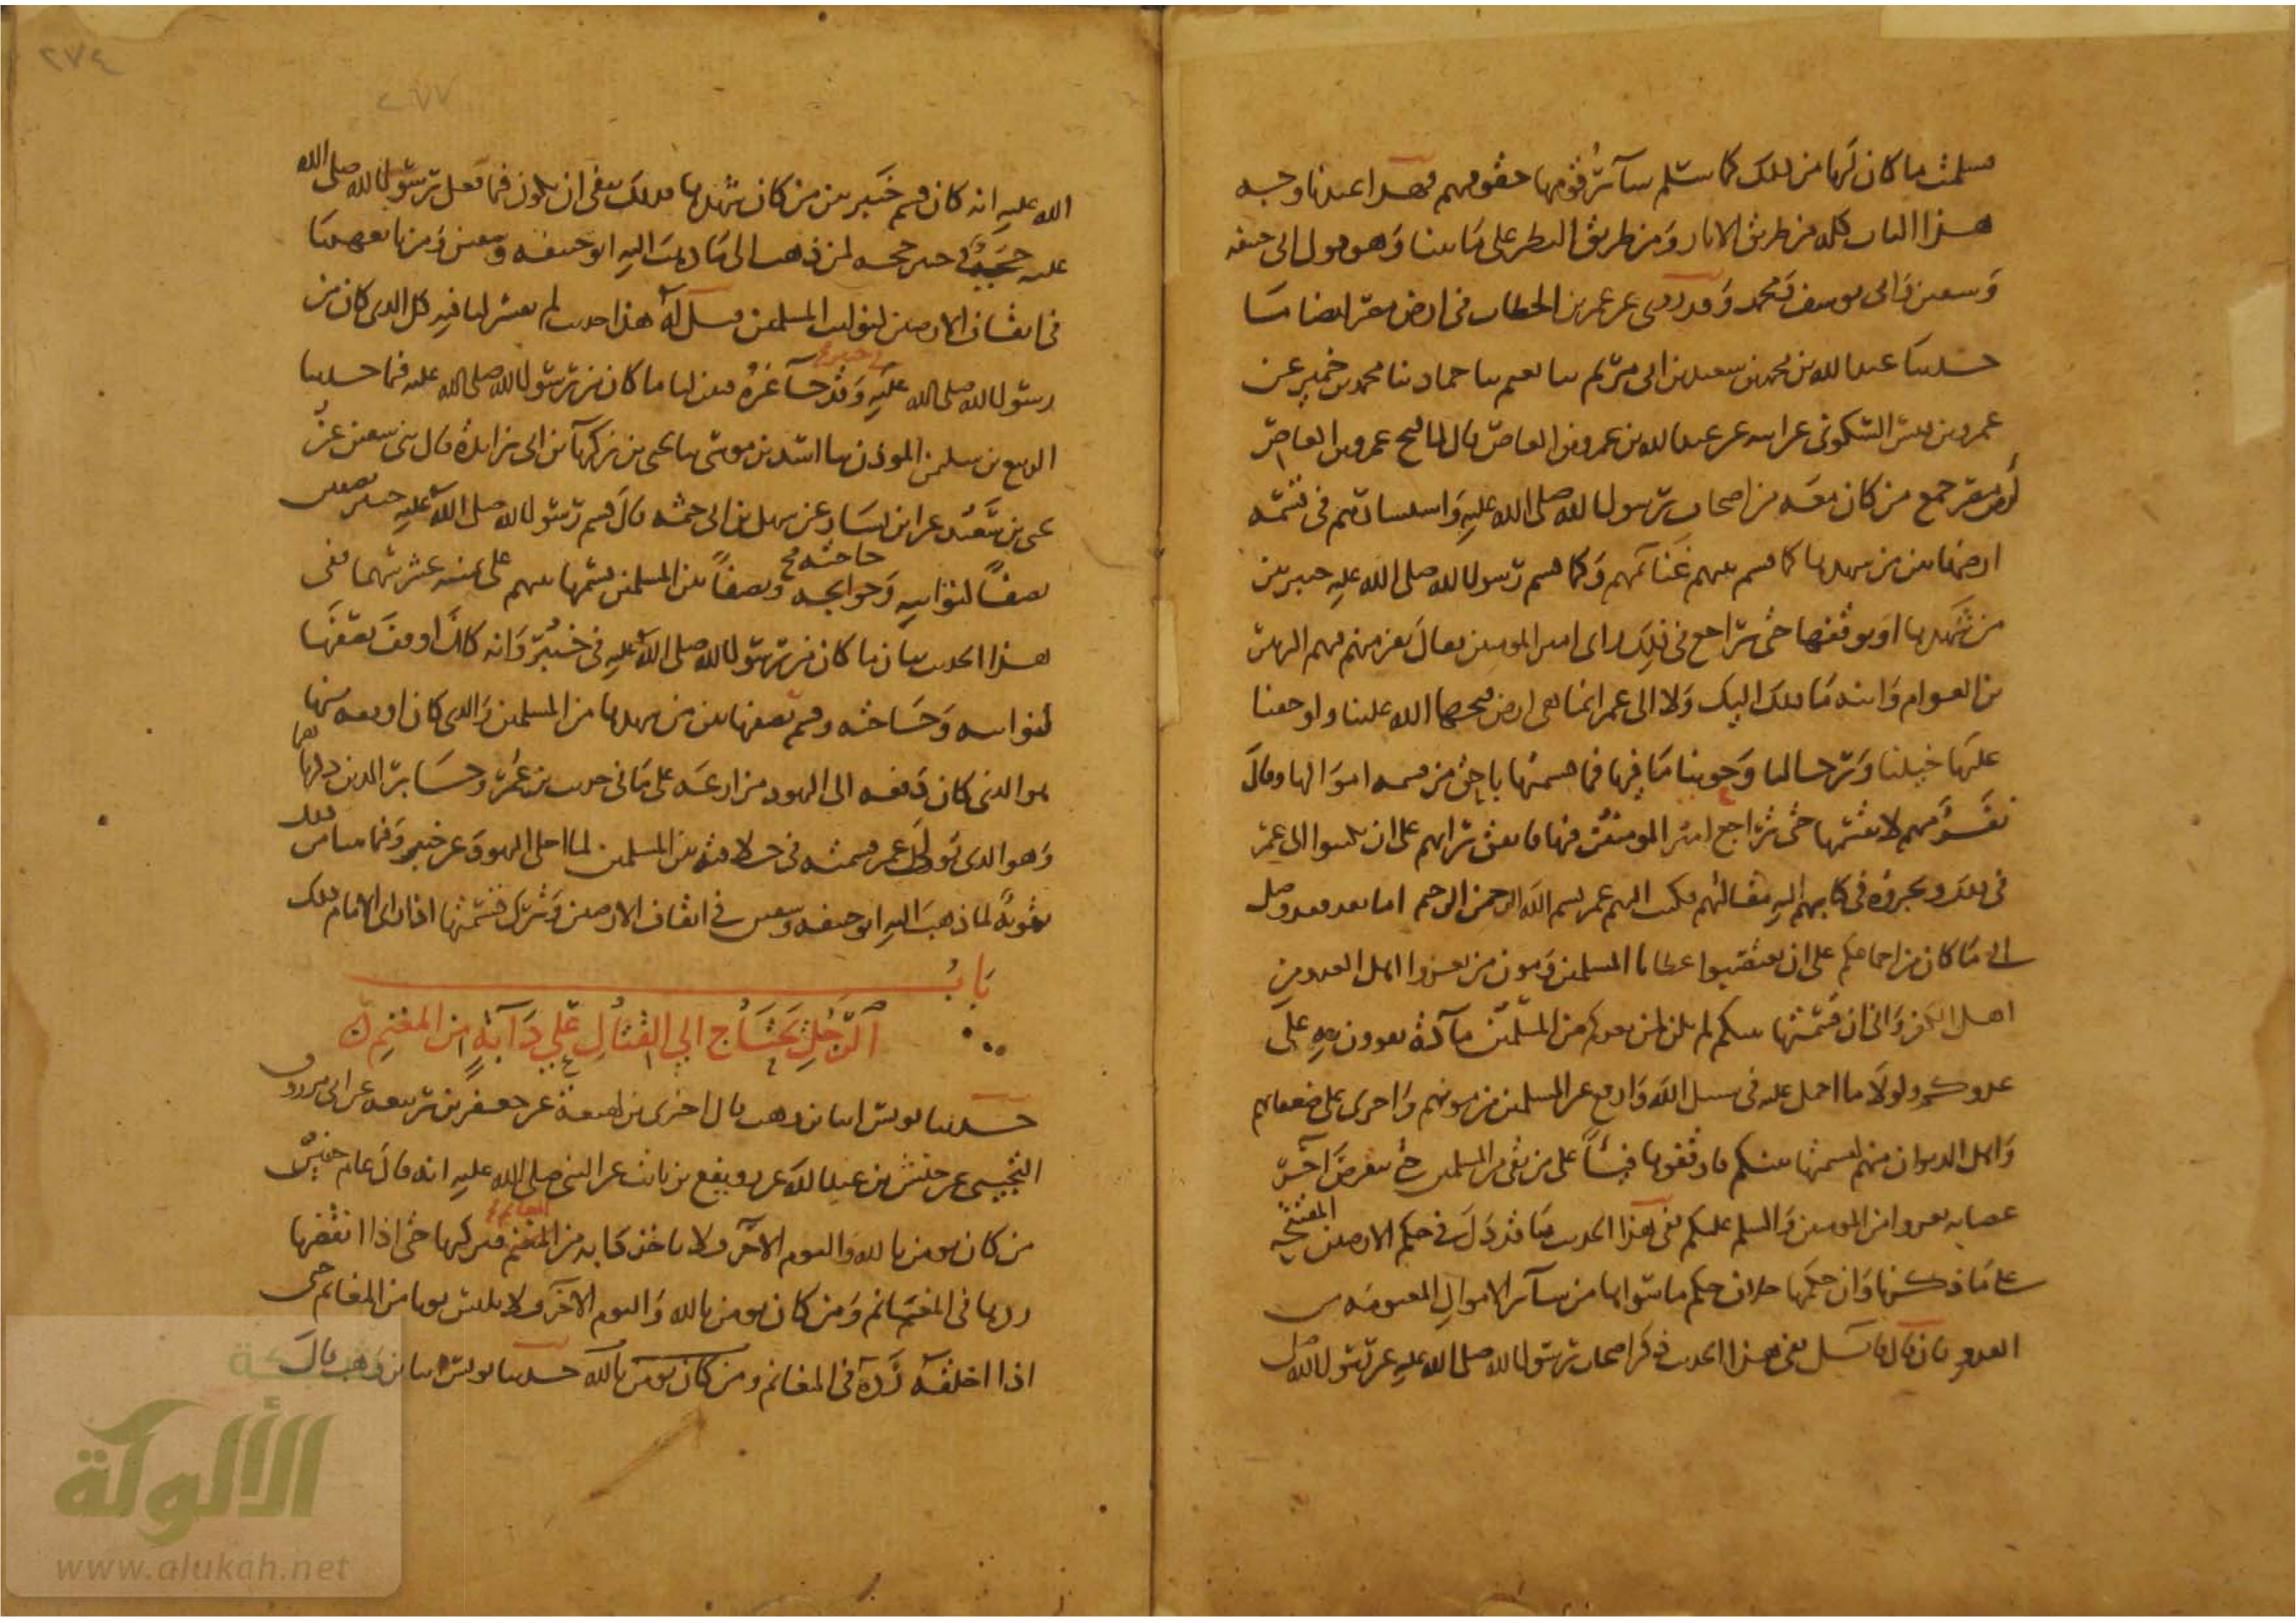 فسلمت ما كان لها من ذلك كما سلم سائر قومها حقوقهم فهذا عندنا وجه
هذا الباب كله من طريق الآثار ومن طريق النظر على ما بينا وهو قول ابي حنيفة
وسفين وابي يوسف ومحمد وقد روي عن عمر بن الخطاب في ارض مصر ايضا ما
حدثنا عبد الله بن محمد بن سعيد بن ابي مريم ثنا نعيم ثنا حماد ثنا محمد بن حمير عن
عمرو بن قيس السكوني عن ابيه عن عبد الله بن عمرو بن العاص قال لما فتح عمرو بن العاص
ارض مصر جمع من كان معه من اصحاب رسول الله صلى الله عليه واستشارهم في قسمة
ارضها بين من شهدها كما قسم بينهم غنائمهم وكما قسم رسول الله صلى الله عليه خيبر بين
من شهدها او يوقفها حتى يراجع في ذلك راي امير المومنين فقال نفر منهم فيهم الزبير
بن العوام والله ما ذلك اليك ولا الى عمر انما هي ارض فتحها الله علينا واوجفنا
عليها خيلنا ورجالنا وحوينا ما فيها فما قسمتها باحق من قسمة اموالها وقال
نفر منهم لا نقسمها حتى نراجع امير المومنين فيها فاتفق رايهم على ان يكتبوا الى عمر
في ذلك ويخبروه في كتابهم اليه مقالتهم فكتب اليهم عمر بسم الله الرحمن الرحيم اما بعد فقد وصل
الي ما كان من اجماعكم على ان تغتصبوا عطايا المسلمين ومون من يغزوا اهل العدو من
اهل الكفر واني ان قسمتها بينكم لم يكن لمن بعدكم من المسلمين مادة يقوون به على
عدوكم ولولا ما احمل عليه في سبيل الله وادفع عن المسلمين من مونهم واجري على ضعفائهم
واهل الديوان منهم لقسمتها بينكم فاوقفوها فيئا على من بقي من المسلمين حتى تنقرض اخر
عصابة تغزو من المومنين والسلم عليكم ففي هذا الحديث ما قد دل في حكم الارضين المفتتحة
على ما ذكرنا وان حكمها خلاف حكم ما سواها من سائر الاموال المغنومة من
العدو فان قال قائل ففي هذا الحديث ذكر اصحاب رسول الله صلى الله عليه عن رسول الله صلى
٢٧٤
٢٧٧
الله عليه انه كان قسم خيبر بين من كان شهدها فذلك ينفي ان يكون فيما فعل رسول الله صلى الله
عليه في خيبر حجة لمن ذهب الى ما ذهب اليه ابو حنيفة وسفين ومن تابعهما
في ايقاف الارضين لنوائب المسلمين قيل له هذا حديث لم يفسر لنا فيه كل الذي كان من
رسول الله صلى الله عليه في خيبر وقد جا غيره فبين لنا ما كان من رسول الله صلى الله عليه فيما حدثنا
الربيع بن سليمن الموذن ثنا اسد بن موسى ثنا يحيى بن زكريا بن ابي زائدة قال ثني سفين عن
يحيى بن سعيد عن ابن يسار عن سهل بن ابي حثمة قال قسم رسول الله صلى الله عليه خيبر نصفين
نصفا لنوائبه وحوائجه حاجته ونصفا بين المسلمين قسمها بينهم على ثمنية عشر سهما ففي
هذا الحديث بيان ما كان من رسول الله صلى الله عليه في خيبر وانه كان اوقف نصفها
لنوائبه وحاجته وقسم نصفها بين من شهدها من المسلمين والذي كان اوقفه منها
هو الذي كان دفعه الى اليهود مزارعة على ما في حديث بن عمر وجابر الذين ذكرناهما
وهو الذي تولى عمر قسمته في خلافته بين المسلمين لما اجلى اليهود عن خيبر وفيما بينا من ذلك
تقوية لما ذهب اليه ابو حنيفة وسفين في ايقاف الارضين وترك قسمتها اذا راى الامام ذلك
باب
الرجل يحتاج الى القتال على دابة من المغنم
حدثنا يونس انبا ابن وهب قال اخبرني بن لهيعة عن جعفر بن ربيعة عن ابي مرزوق
التجيبي عن حنش بن عبد الله عن رويفع بن ثابت عن النبي صلى الله عليه انه قال عام خيبر
من كان يومن بالله واليوم الآخر فلا ياخذ دابة من المغنم المغانم فيركبها حتى اذا انقضها
ردها في المغانم ومن كان يومن بالله واليوم الآخر فلا يلبس ثوبا من المغانم حتى
اذا اخلقه رده في المغانم ومن كان يومن بالله حدثنا يونس انبا ابن وهب قال
الألوكة
www.alukah.net